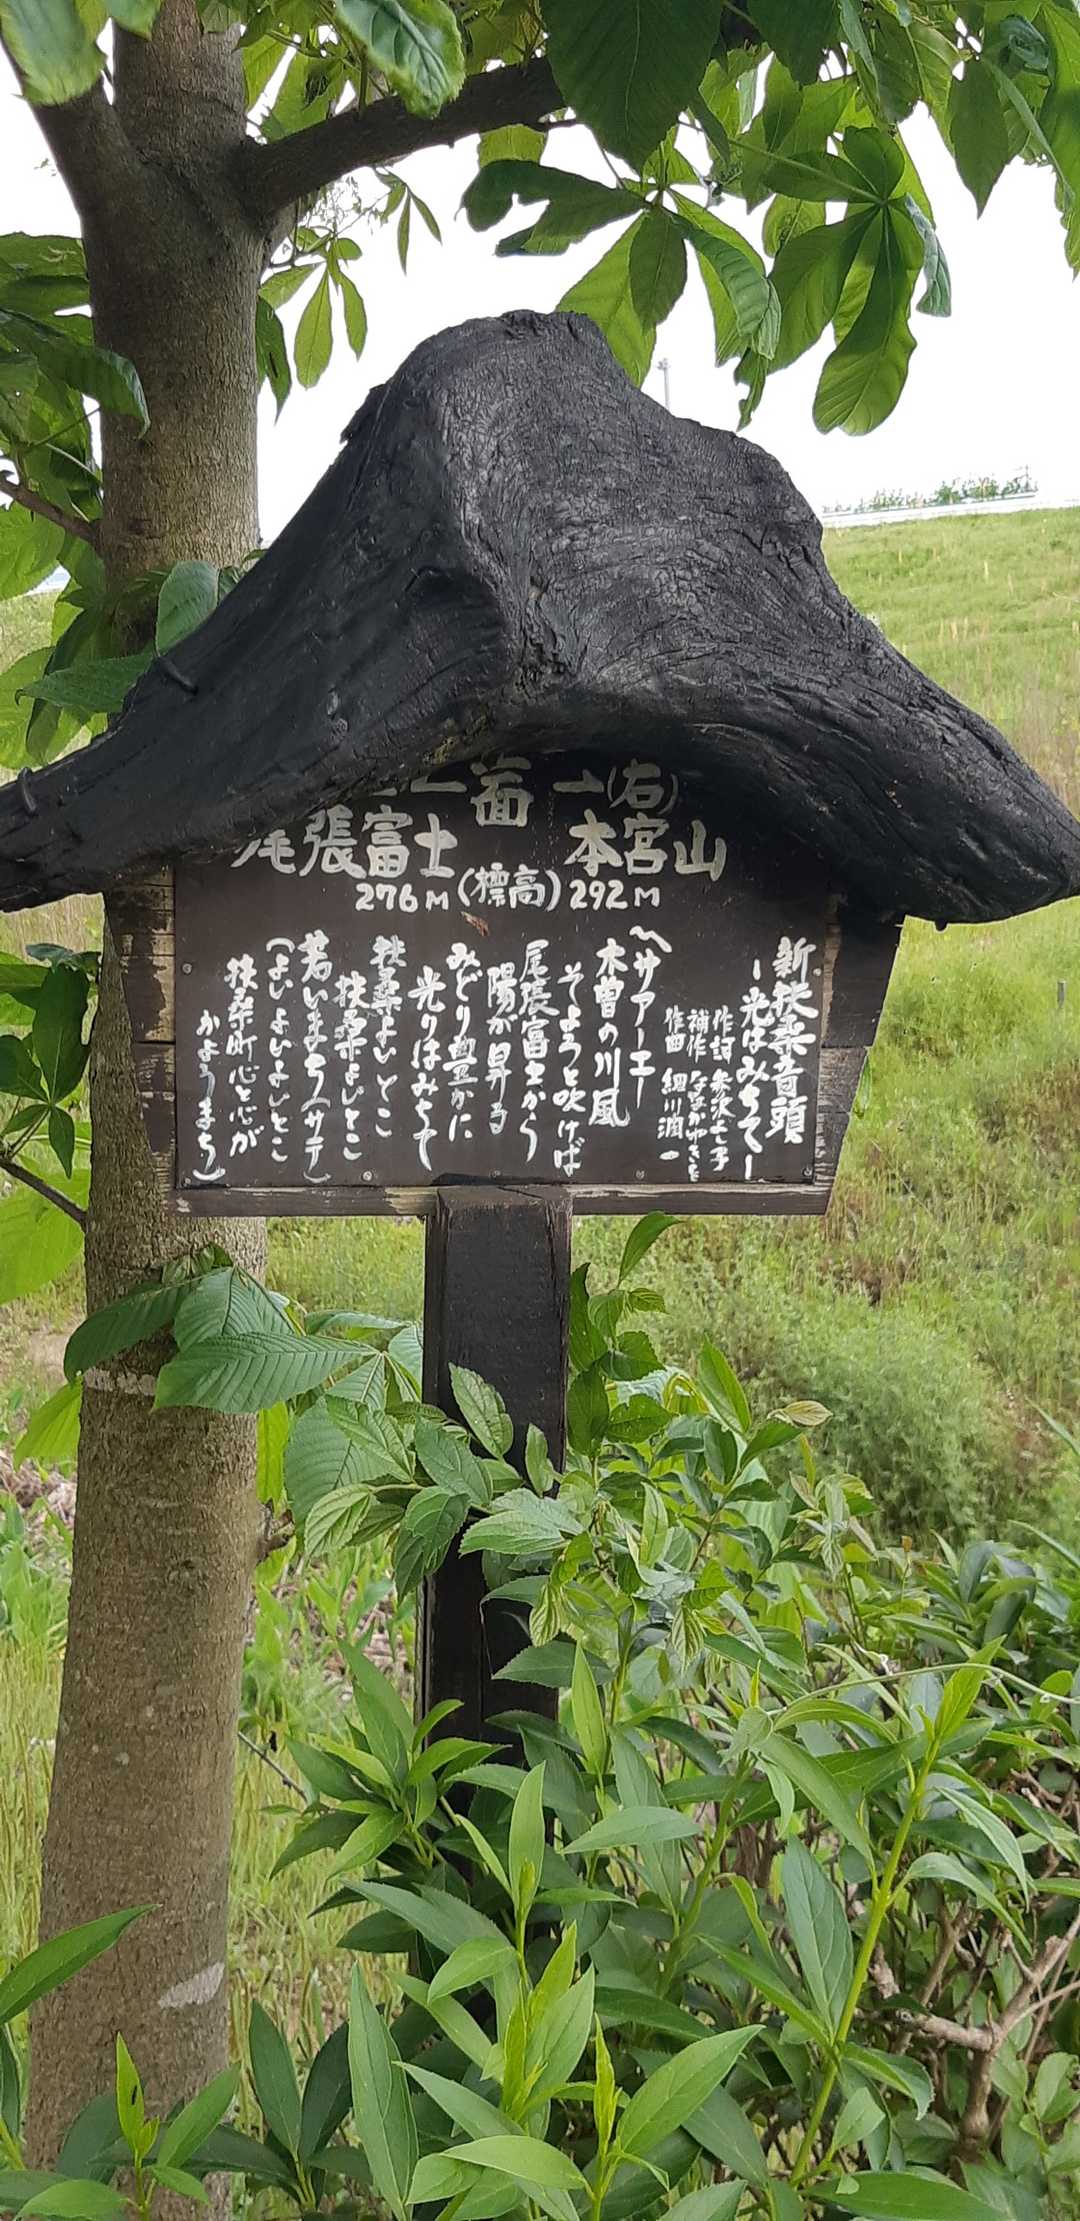 面 一(右)
尾張富士 本宮山
276M(標高)292M
新扶桑音頭
ー光はみちてー
作詞
補作
作曲 細川潤一
〽サアーエー
木曽の川風
そよろと吹けば
尾張富士から
陽が昇る
みどり豊かに
光りはみちて
扶桑よいとこ
扶桑よいとこ
若いまち(サテ)
(よいよいよいとこ
扶桑町心と心が
かようまち)